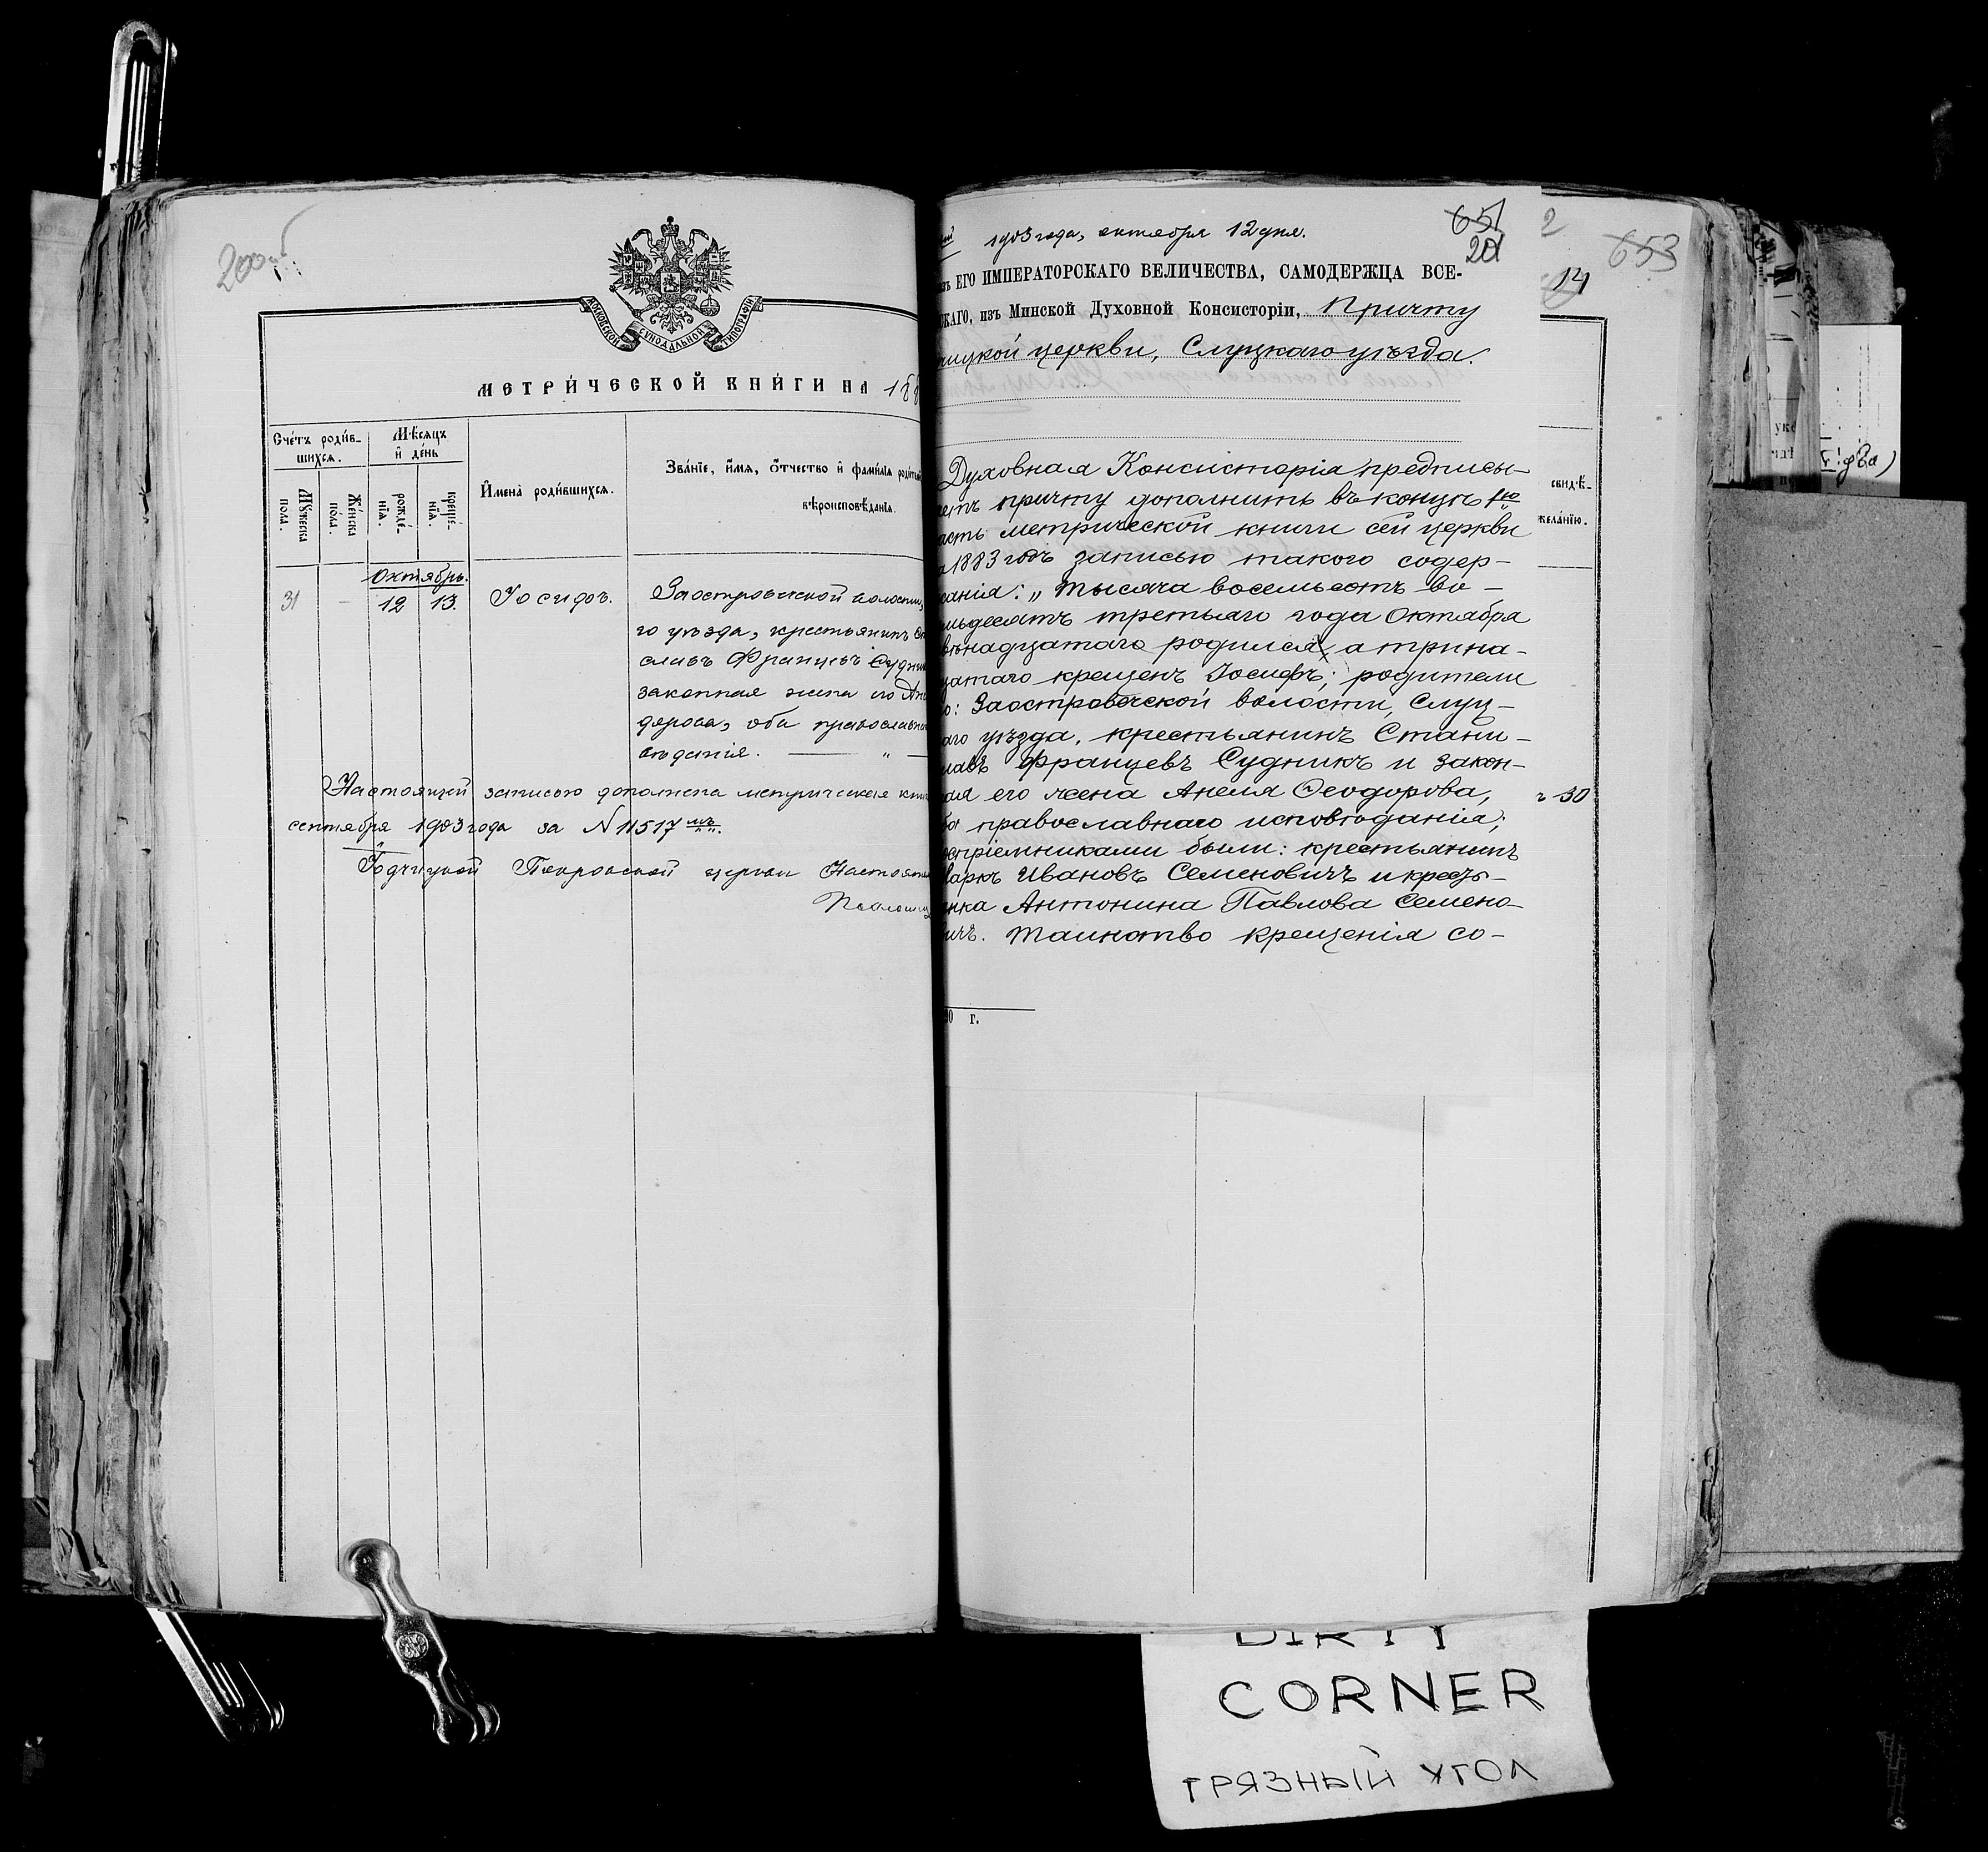 200
МОСКОВСКОЙ СѴНОДАЛЬНОЙ ТИПОГРАФІИ
МЕТРИ́ЧЕСКОЙ КНИ́ГИ НА 188
Сче́тъ роди́в-
шихся.
Мѣ́сяцъ
и҆ де́нь
Мꙋжеска
пола.
Же́нска
пола.
рожде́-
нїѧ.
креще́-
нїѧ.
И҆мена̀ роди́вшихсѧ.
Зва́нїе, и҆́мѧ, ѻ҆́тчество и҆ фами́лїѧ роди́т
вѣроисповѣ́данїѧ.
Октябрь.
31 - 12 13. Іосифъ. Заостровечской волости,
го уѣзда, крестьянинъ Ст
славъ Францевъ Судни
законная жена его Ан
дорова, оба православн
вѣданія. — " —
Настоящей записью дополнена метрическая кни
сентября 1903 года за N 11517 мъ.
Годчицкой Покровской церкви Настоят
1903 года, октября 12 дня.
651
20
2
653
14
ЕГО ИМПЕРАТОРСКАГО ВЕЛИЧЕСТВА, САМОДЕРЖЦА ВСЕ-
СКАГО, изъ Минской Духовной Консисторіи, Причту
чицкой церкви, Слуцкаго уѣзда.
Духовная Консисторія предписы-
аетъ причту дополнить въ концѣ 1ю
асть метрической книги сей церкви
а 1883 годъ записью такого содер-
жанія: „Тысяча восемьсотъ во-
мьдесятъ третьяго года Октября
вѣнадцатаго родился, а трина-
цатаго крещенъ Іосифъ; родители
о: Заостровечской волости, Слуц-
аго уѣзда, крестьянинъ Стани-
лавъ Францевъ Судникъ и закон-
ая его жена Анеля Ѳеодорова,
ба православнаго исповѣданія;
оспріемниками были: крестьянинъ
Маркъ Ивановъ Семеновичъ и кресть-
янка Антонина Павлова Семено-
вичъ. Таинство крещенія со-
свидѣ-
жела́нїю.
30
90 г.
DIRTY
CORNER
ГРЯЗНЫЙ УГОЛ